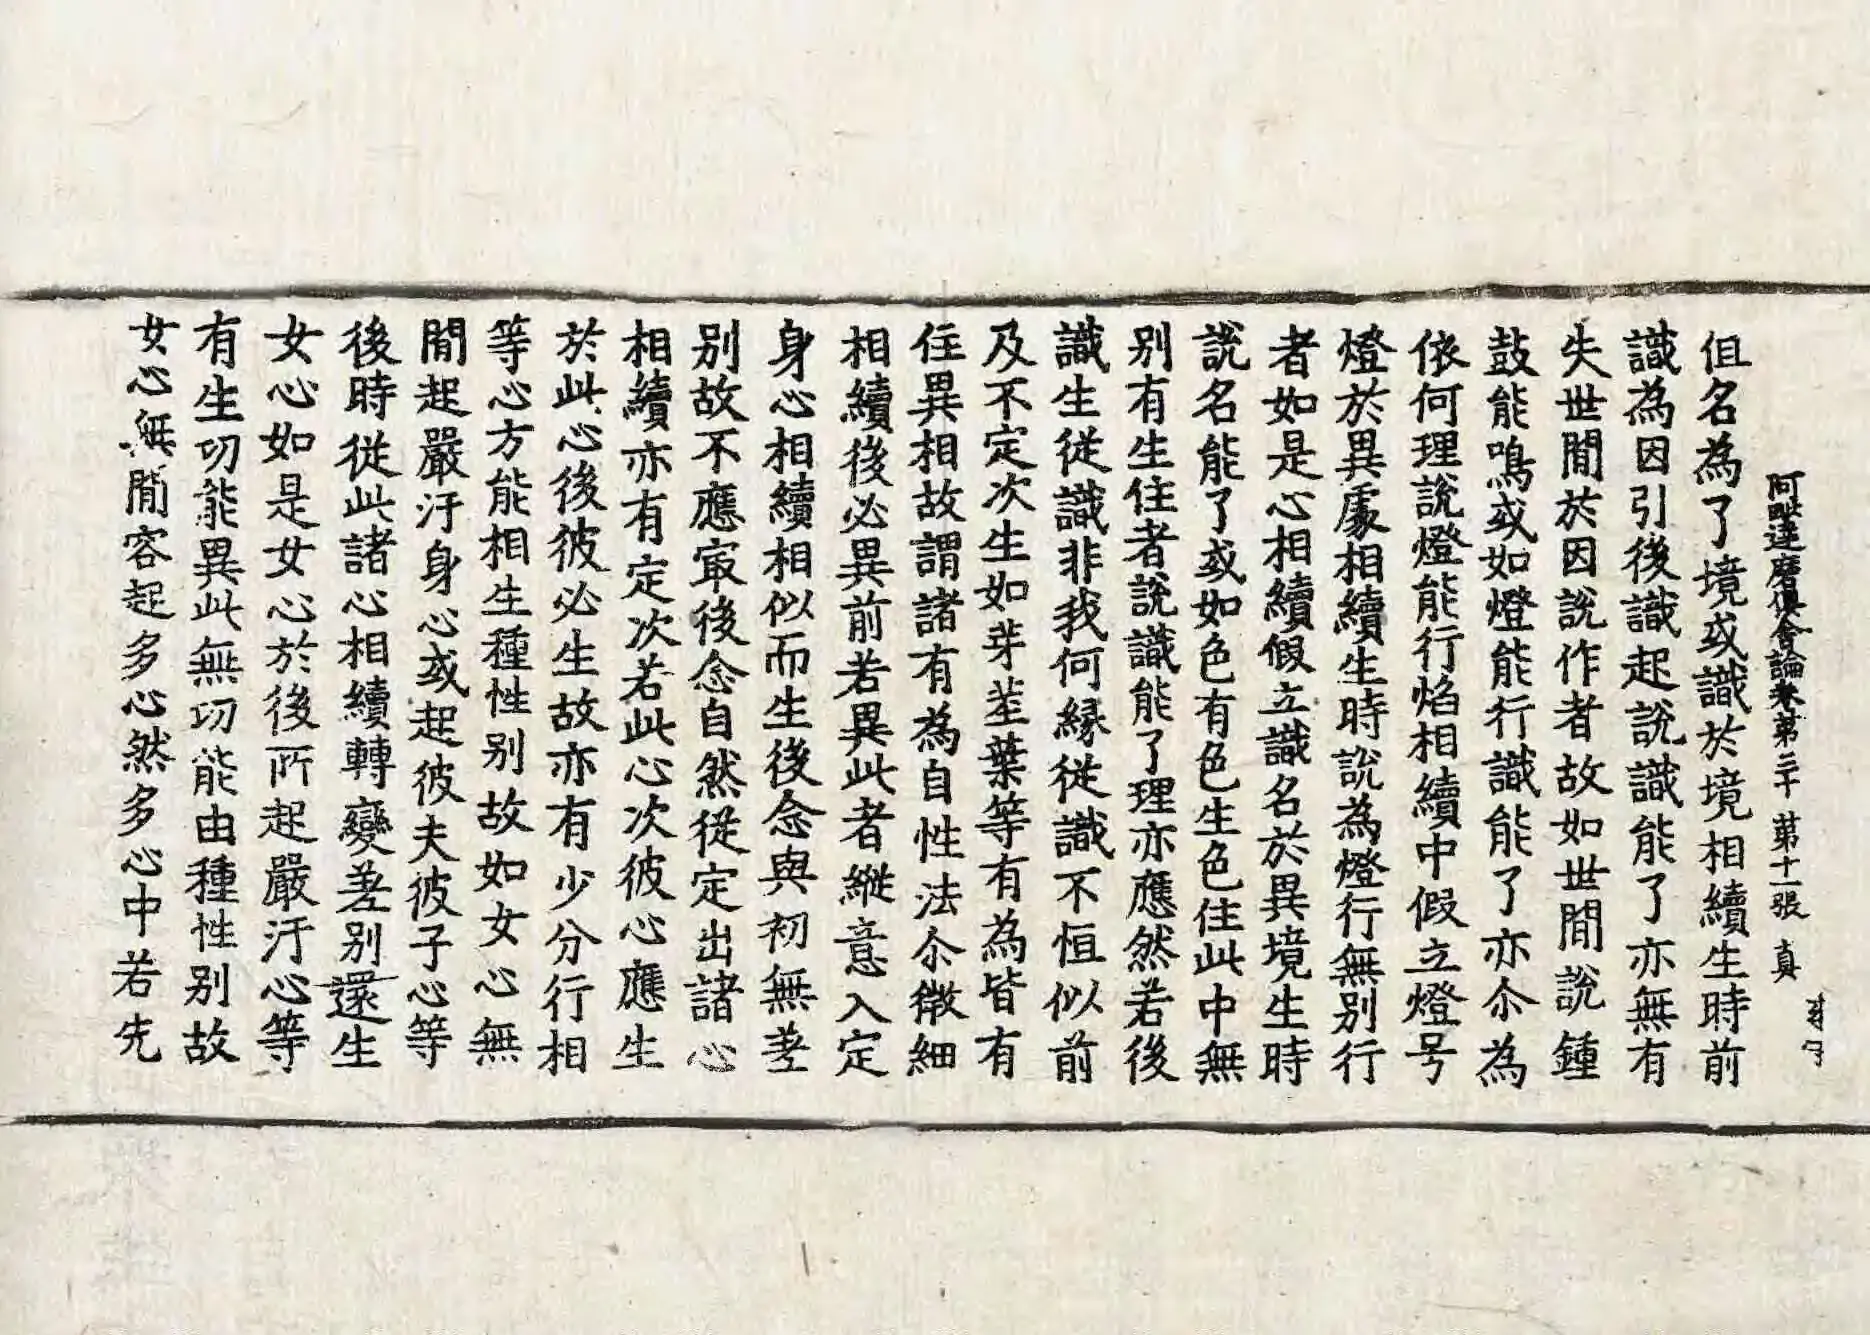 阿毗達磨俱舍論卷第三十 第十一張 真
但名為了境或識於境相續生時前
識為因引後識起說識能了亦無有
失世間於因說作者故如世間說鍾
鼓能鳴或如燈能行識能了亦尒為
依何理說燈能行焰相續中假立燈号
燈於異處相續生時說為燈行無別行
者如是心相續假立識名於異境生時
說名能了或如色有色生色住此中無
別有生住者說識能了理亦應然若後
識生從識非我何緣從識不恒似前
及不定次生如芽莖葉等有為皆有
住異相故謂諸有為自性法尒微細
相續後必異前若異此者縱意入定
身心相續相似而生後念與初無差
別故不應㝡後念自然從定出諸心
相續亦有定次若此心次彼心應生
於此心後彼必生故亦有少分行相
等心方能相生種性別故如女心無
間起嚴汙身心或起彼夫彼子心等
後時從此諸心相續轉變差別還生
女心如是女心於後所起嚴汙心等
有生功能異此無功能由種性別故
女心無間容起多心然多心中若先